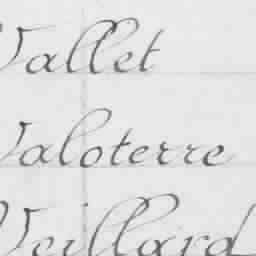 Vallet
Valoterre
Veillard